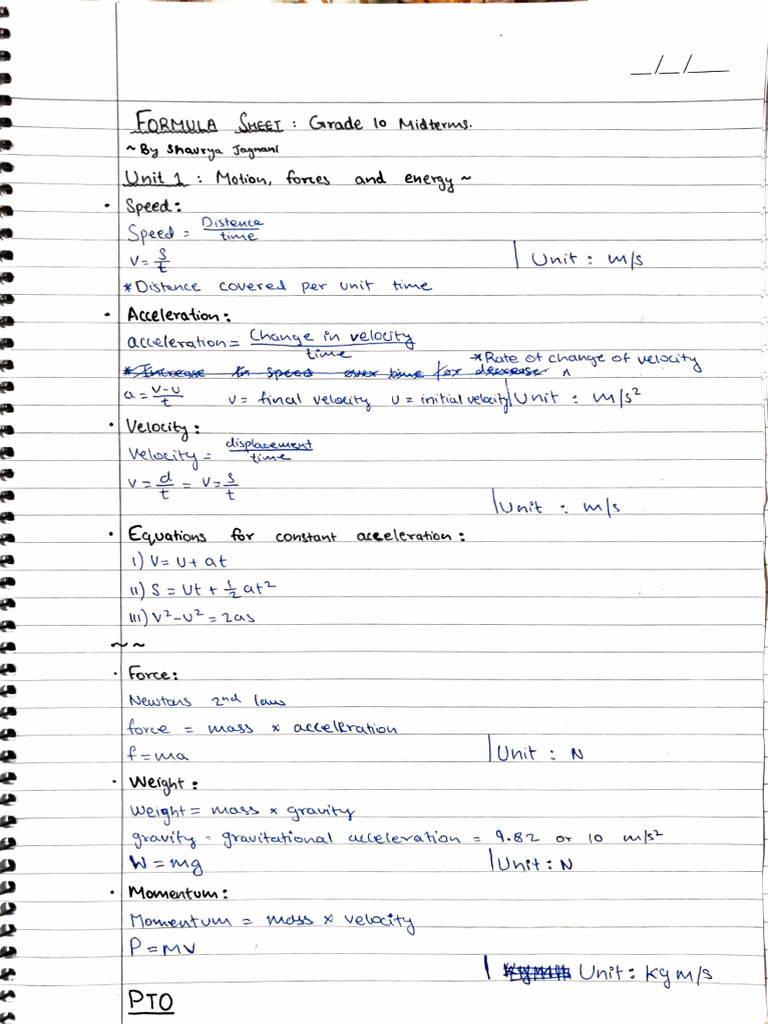 _/_/__
FORMULA SHEET : Grade 10 Midterms.
~ By Shaurya Jagnani
Unit 1 : Motion, forces and energy ~
• Speed:
Speed = Distance/time
v = s/t | Unit : m/s
* Distance covered per unit time
• Acceleration:
acceleration = Change in velocity/time
* Increase in speed over time / or decrease ^ * Rate of change of velocity
a = v-u/t v = final velocity u = initial velocity | Unit : m/s²
• Velocity:
Velocity = displacement/time
v = d/t = v = s/t
| Unit : m/s
• Equations for constant acceleration:
i) v = u + at
ii) s = ut + ½ at²
iii) v² - u² = 2as
~ ~
• Force:
Newtons 2nd law
force = mass x acceleration
f = ma | Unit : N
• Weight:
Weight = mass x gravity
gravity = gravitational acceleration = 9.82 or 10 m/s²
W = mg | Unit : N
• Momentum:
Momentum = mass x velocity
P = MV
| Unit : kg m/s
PTO